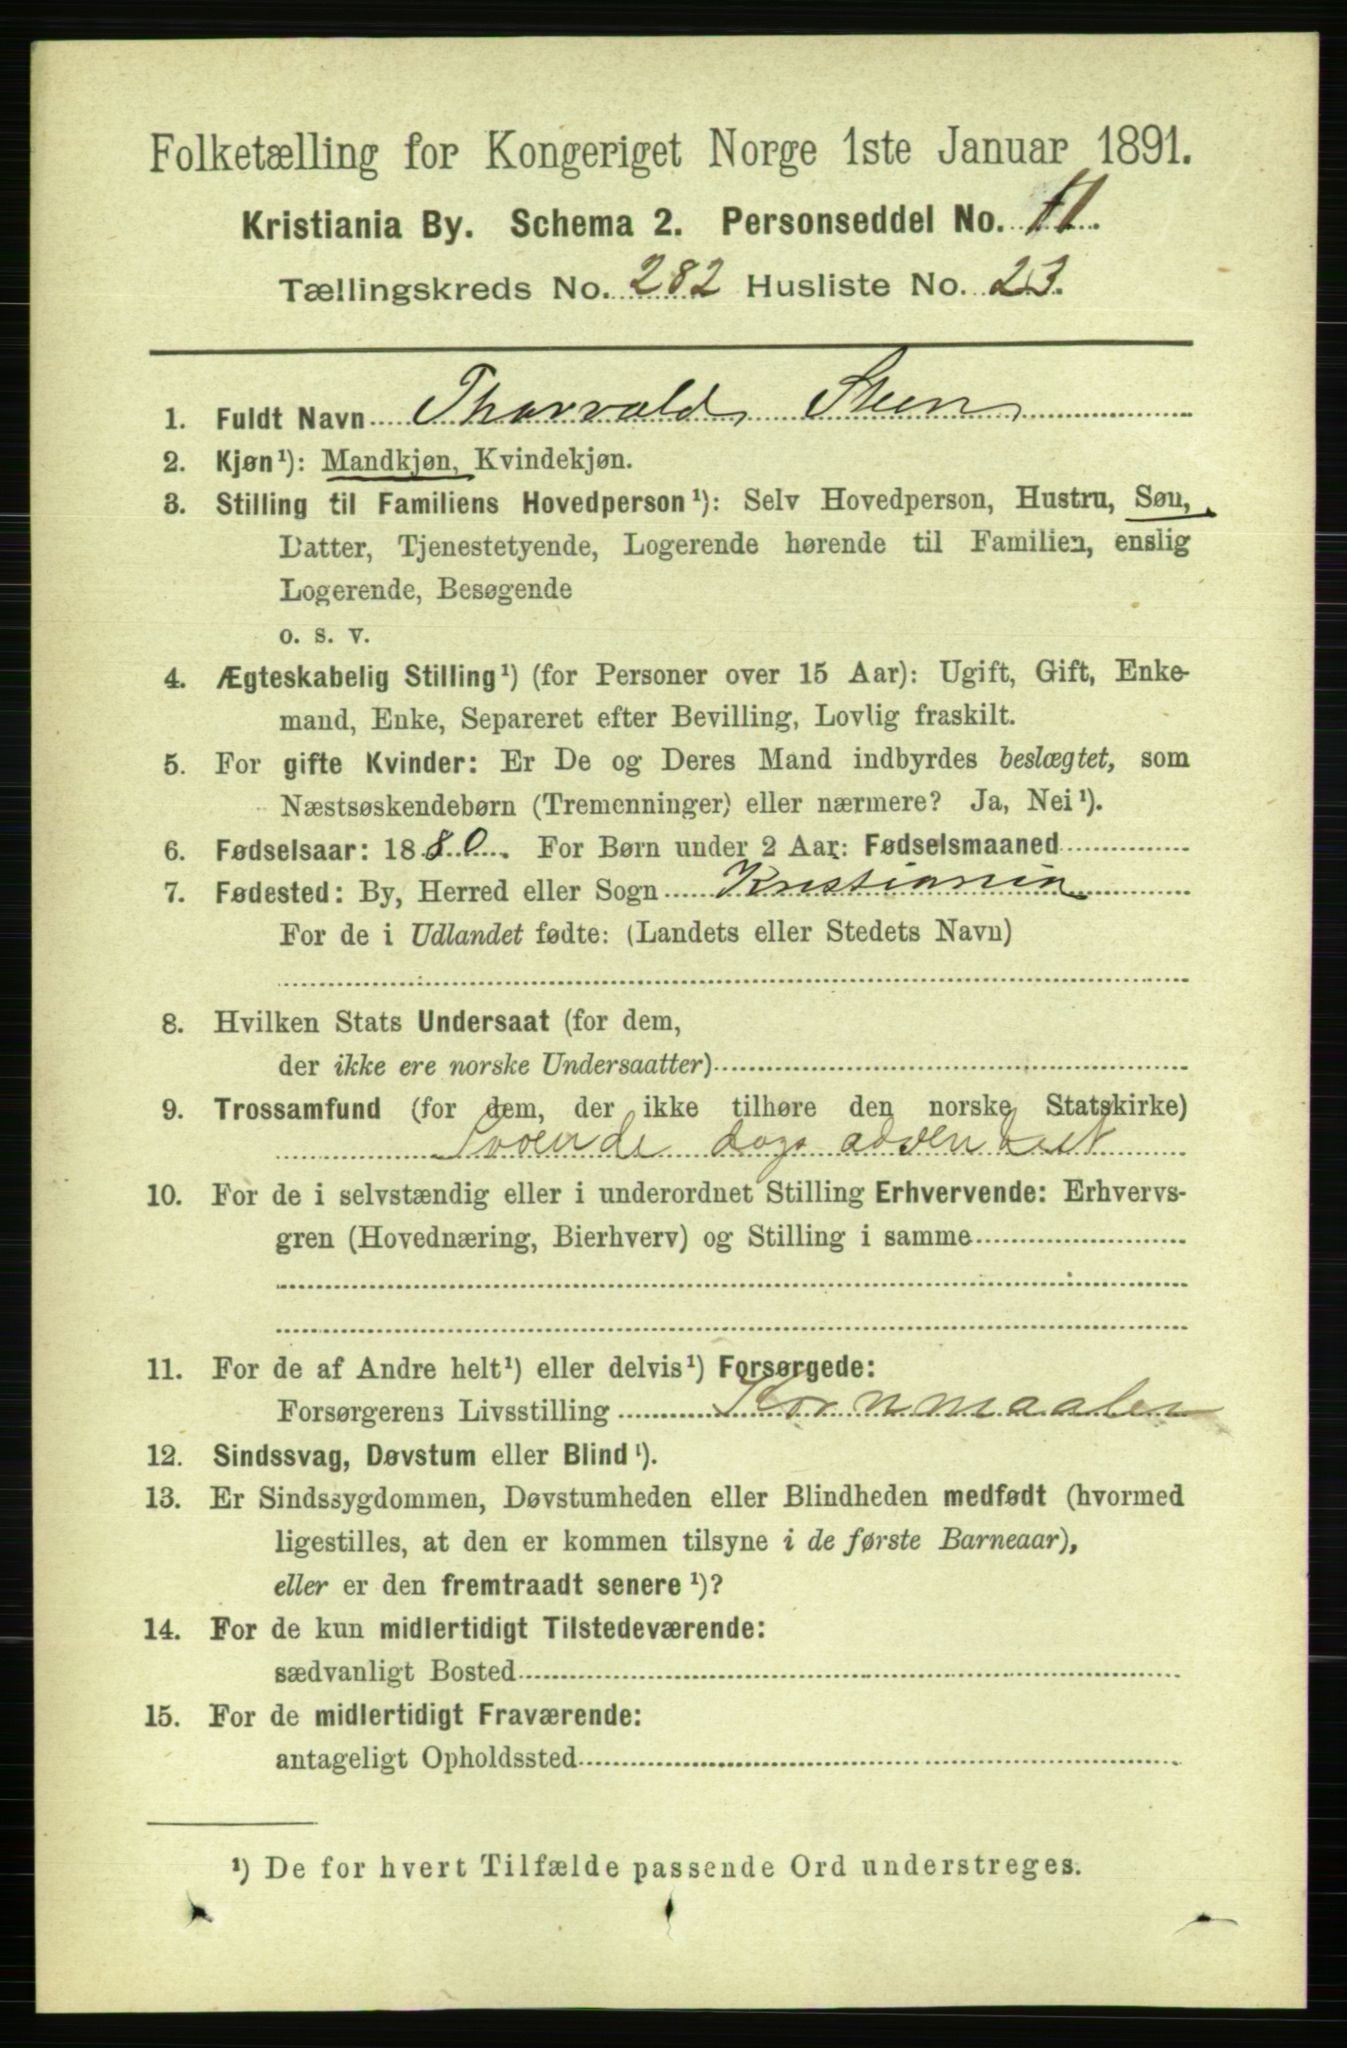 Folketælling for Kongeriget Norge 1ste Januar 1891.
Kristiania By. Schema 2. Personseddel No. 11.
Tællingskreds No. 282 Husliste No. 23.
1. Fuldt Navn Thorvald Steen
2. Kjøn¹): Mandkjøn, Kvindekjøn.
3. Stilling til Familiens Hovedperson¹): Selv Hovedperson, Hustru, Søn,
Datter, Tjenestetyende, Logerende hørende til Familien, enslig
Logerende, Besøgende
o. s. v.
4. Ægteskabelig Stilling¹) (for Personer over 15 Aar): Ugift, Gift, Enke-
mand, Enke, Separeret efter Bevilling, Lovlig fraskilt.
5. For gifte Kvinder: Er De og Deres Mand indbyrdes beslægtet, som
Næstsøskendebørn (Tremenninger) eller nærmere? Ja, Nei¹).
6. Fødselsaar: 1880. For Børn under 2 Aar: Fødselsmaaned
7. Fødested: By, Herred eller Sogn Kristiania
For de i Udlandet fødte: (Landets eller Stedets Navn)
8. Hvilken Stats Undersaat (for dem,
der ikke ere norske Undersaatter)
9. Trossamfund (for dem, der ikke tilhøre den norske Statskirke)
Svoende dags advendist
10. For de i selvstændig eller i underordnet Stilling Erhvervende: Erhvervs-
gren (Hovednæring, Bierhverv) og Stilling i samme
11. For de af Andre helt¹) eller delvis¹) Forsørgede:
Forsørgerens Livsstilling Kornmaaler
12. Sindssvag, Døvstum eller Blind¹).
13. Er Sindssygdommen, Døvstumheden eller Blindheden medfødt (hvormed
ligestilles, at den er kommen tilsyne i de første Barneaar),
eller er den fremtraadt senere¹)?
14. For de kun midlertidigt Tilstedeværende:
sædvanligt Bosted
15. For de midlertidigt Fraværende:
antageligt Opholdssted
¹) De for hvert Tilfælde passende Ord understreges.